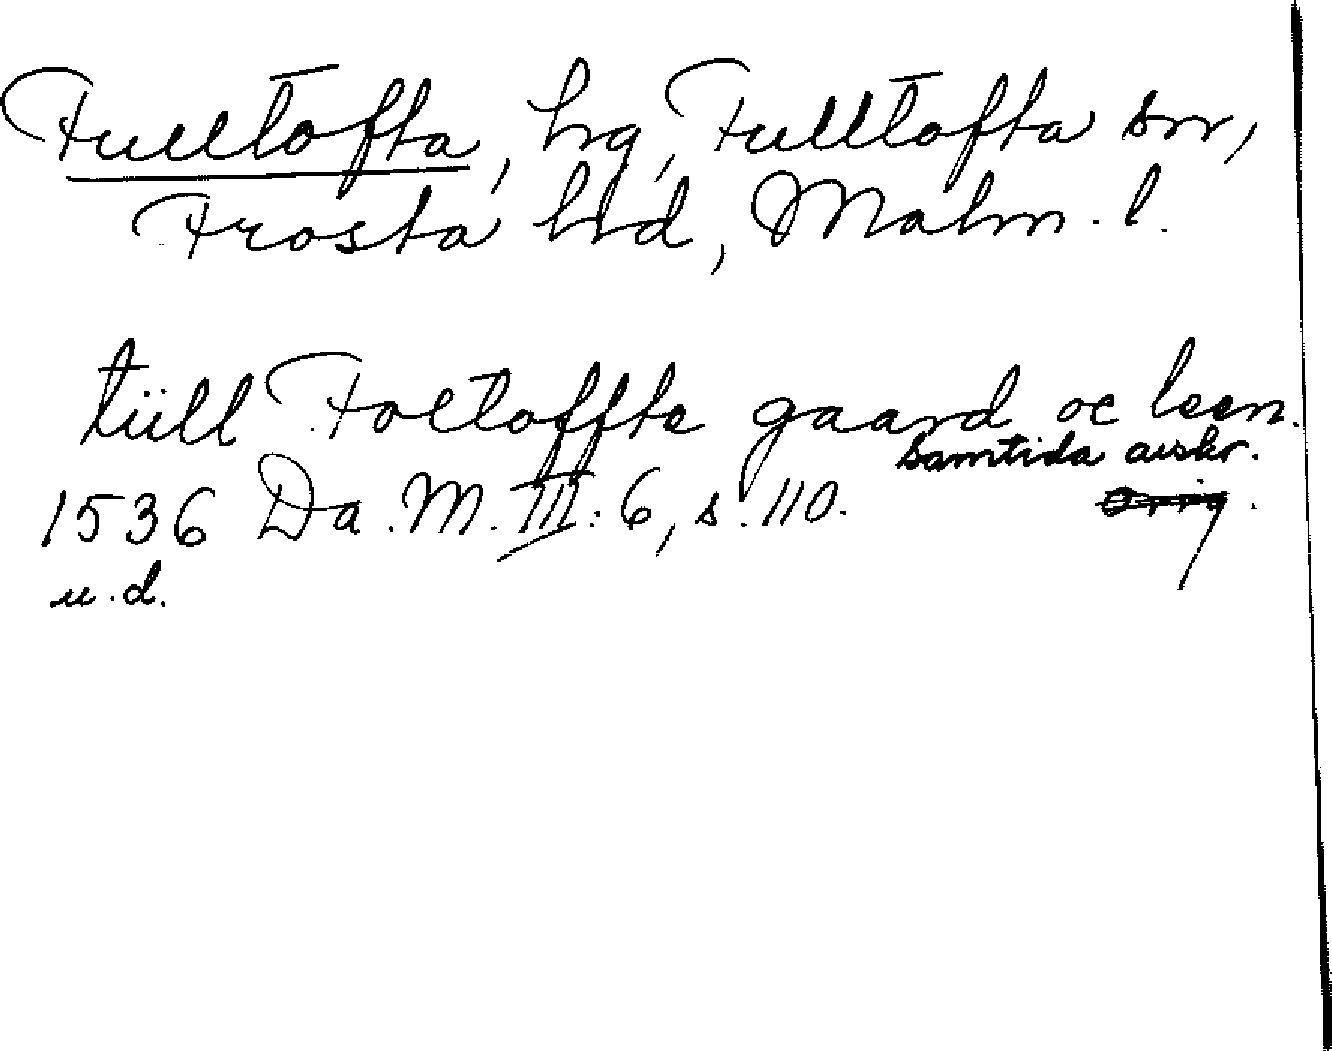 Fulltofta, hg, Fulltofta sn,
Frosta hd, Malm. l.
tüll Foltoffte gaard oc leen.
samtida avskr.
1536 Da. M. III: 6, s. 110. Orig.
u. d.